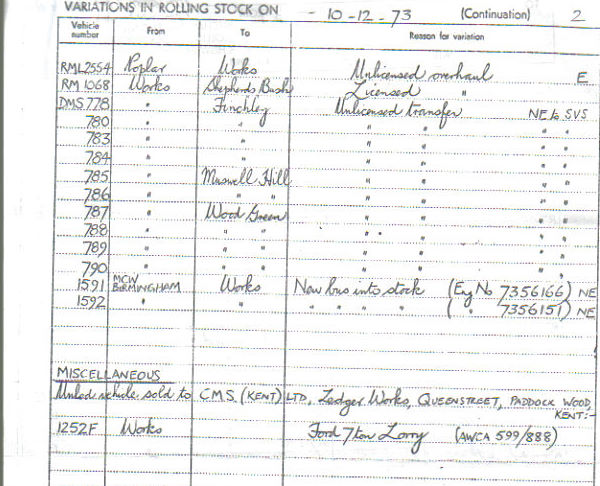 VARIATIONS IN ROLLING STOCK ON - 10 - 12 - 73 (Continuation) 2
Vehicle number From To Reason for variation
RML2554 Poplar Works Unlicensed overhaul E
RM 1068 Works Shepherds Bush Licensed "
DMS 778 " Finchley Unlicensed transfer NE to SVS
780 " " " " " "
783 " " " " " "
784 " " " " " "
785 " Muswell Hill " " " "
786 " " " " " " "
787 " Wood Green " " " "
788 " " " " " " "
789 " " " " " " "
790 " " " " " " "
1591 MCW BIRMINGHAM Works New bus into stock (Eng No 7356166) NE
1592 " " " " " " ( " 7356151) NE
MISCELLANEOUS
Unlicd vehicle sold to C.M.S. (KENT) LTD, Ledger Works, QUEENSTREET, PADDOCK WOOD,
KENT:-
1252F Works Ford 7 ton Lorry (AWCA 599/888)